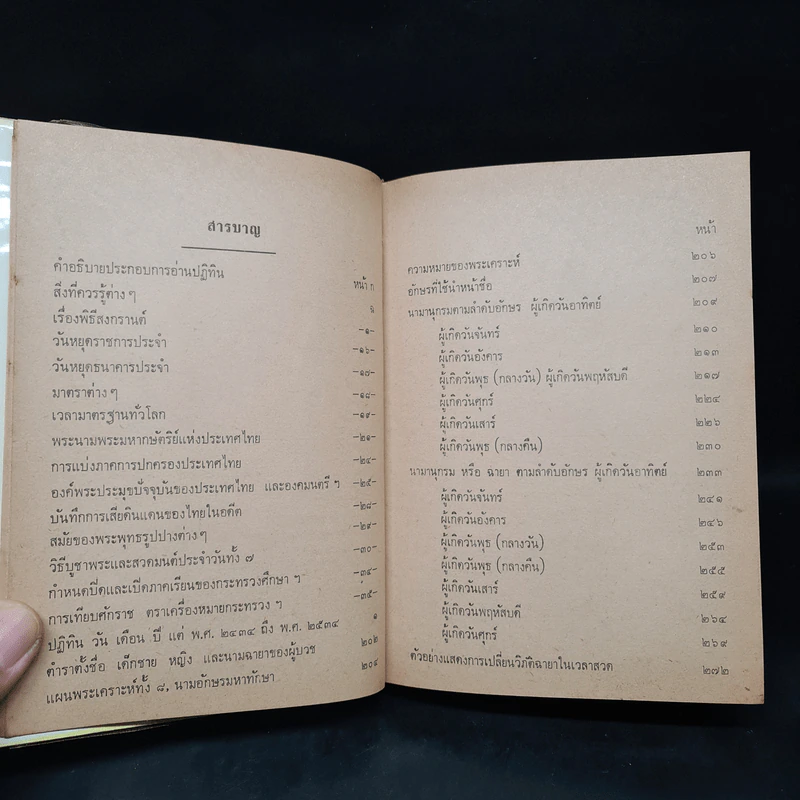 สารบาญ
คำอธิบายประกอบการอ่านปฏิทิน หน้า ก
สิ่งที่ควรรู้ต่าง ๆ ฉ
เรื่องพิธีสงกรานต์ -๑-
วันหยุดราชการประจำ -๑๖-
วันหยุดธนาคารประจำ -๑๗-
มาตราต่าง ๆ -๑๘-
เวลามาตรฐานทั่วโลก -๑๙-
พระนามพระมหากษัตริย์แห่งประเทศไทย -๒๑-
การแบ่งภาคการปกครองประเทศไทย -๒๔-
องค์พระประมุขปัจจุบันของประเทศไทย และองคมนตรี ฯ -๒๕-
บันทึกการเสียดินแดนของไทยในอดีต -๒๘-
สมัยของพระพุทธรูปปางต่าง ๆ -๒๙-
วิธีบูชาพระและสวดมนต์ประจำวันทั้ง ๗ -๓๐-
กำหนดปิดและเปิดภาคเรียนของกระทรวงศึกษา ฯ -๓๔-
การเทียบศักราช ตราเครื่องหมายกระทรวง ฯ -๓๕-
ปฏิทิน วัน เดือน ปี แต่ พ.ศ. ๒๔๓๔ ถึง พ.ศ. ๒๕๓๔ ๑
ตำราตั้งชื่อ เด็กชาย หญิง และนามฉายาของผู้บวช ๒๐๒
แผนพระเคราะห์ทั้ง ๘, นามอักษรมหาทักษา ๒๐๔
หน้า
ความหมายของพระเคราะห์ ๒๐๖
อักษรที่ใช้นำหน้าชื่อ ๒๐๗
นามานุกรมตามลำดับอักษร ผู้เกิดวันอาทิตย์ ๒๐๙
ผู้เกิดวันจันทร์ ๒๑๐
ผู้เกิดวันอังคาร ๒๑๓
ผู้เกิดวันพุธ (กลางวัน) ผู้เกิดวันพฤหัสบดี ๒๑๗
ผู้เกิดวันศุกร์ ๒๒๔
ผู้เกิดวันเสาร์ ๒๒๖
ผู้เกิดวันพุธ (กลางคืน) ๒๓๐
นามานุกรม หรือ ฉายา ตามลำดับอักษร ผู้เกิดวันอาทิตย์ ๒๓๓
ผู้เกิดวันจันทร์ ๒๔๑
ผู้เกิดวันอังคาร ๒๔๖
ผู้เกิดวันพุธ (กลางวัน) ๒๕๓
ผู้เกิดวันพุธ (กลางคืน) ๒๕๕
ผู้เกิดวันเสาร์ ๒๕๙
ผู้เกิดวันพฤหัสบดี ๒๖๔
ผู้เกิดวันศุกร์ ๒๖๙
ตัวอย่างแสดงการเปลี่ยนวิภัติฉายาในเวลาสวด ๒๗๒